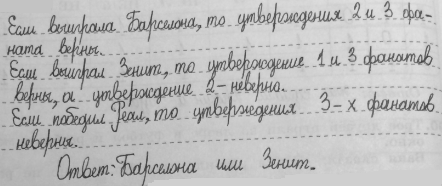 Если выиграла Барселона, то утверждения 2 и 3 фа-
ната верны.
Если выиграл Зенит, то утверждение 1 и 3 фанатов
верны, а утверждение 2-неверно.
Если победил Реал, то утверждения 3-х фанатов
неверны.
Ответ: Барселона или Зенит.